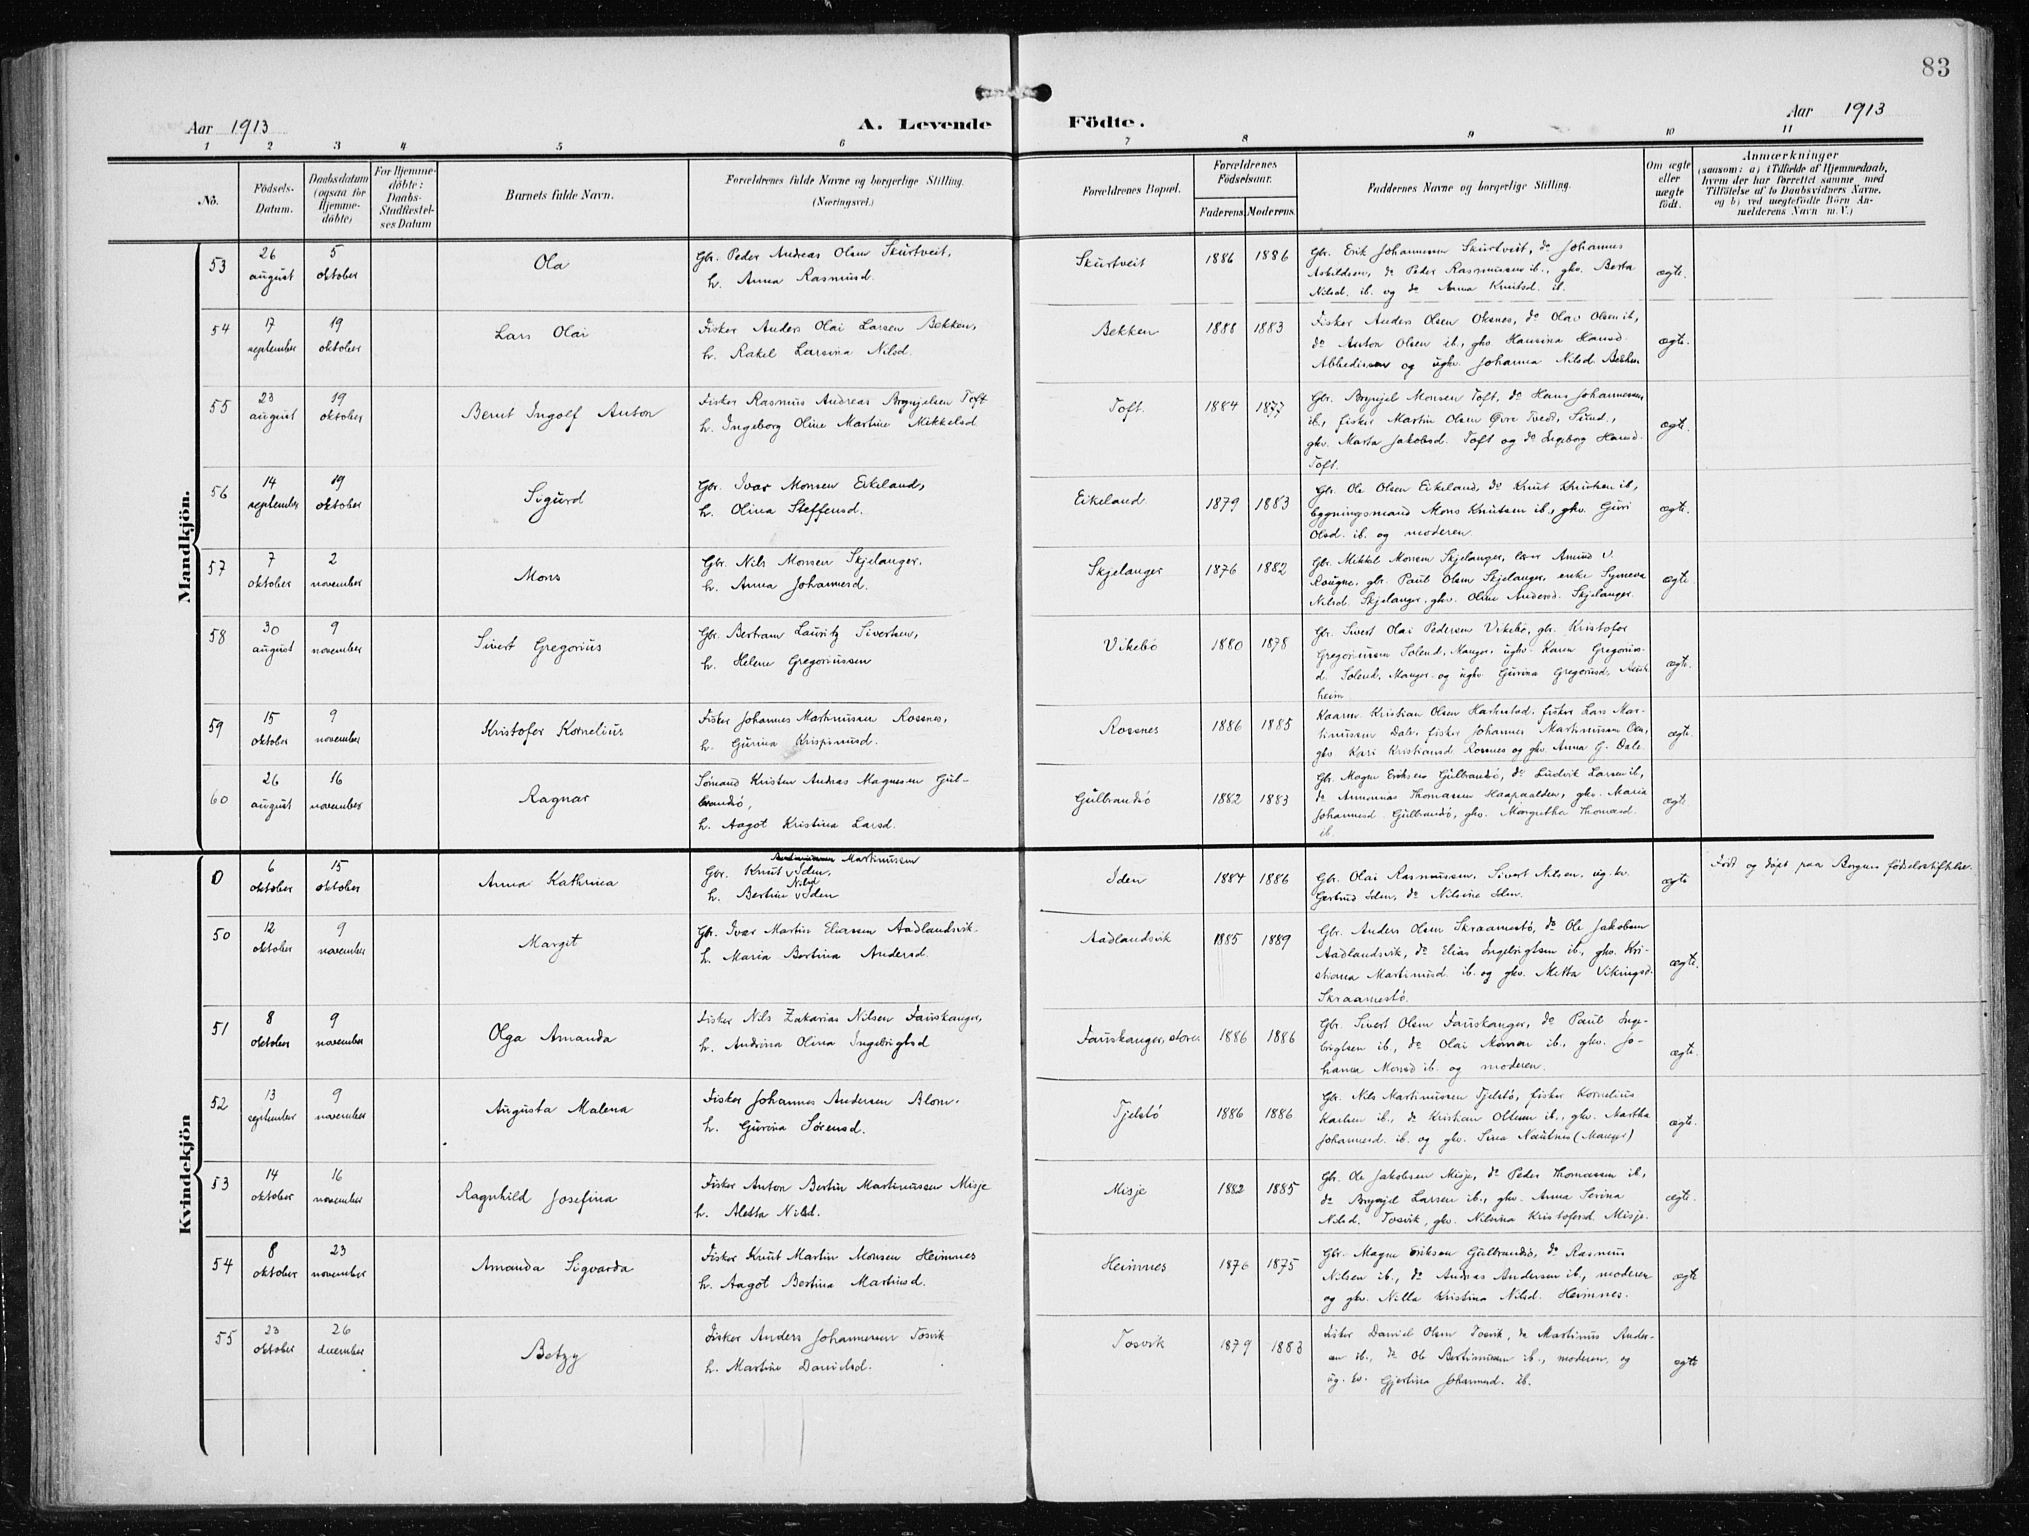 83
Aar 1913
A. Levende Födte.
Aar 1913
1 2 3 4 5 6 7 8 9 10 11
No.
Födsels-
Datum.
Daabsdatum
(ogsaa for
Hjemme-
döbte)
For Hjemme-
döbte:
Daabs-
Stadfestel-
ses Datum
Barnets fulde Navn.
Forældrenes fulde Navne og borgerlige Stilling.
(Næringsvei.)
Forældrenes Bopæl.
Forældrenes
Födselsaar.
Faderens. Moderens.
Faddernes Navne og borgerlige Stilling.
Om ægte
eller
uægte
födt.
Anmærkninger
(saasom: a) i Tilfælde af Hjemmedaab,
hvem der har forrettet samme med
Tilföielse af to Daabsvidners Navne,
og b) ved uægtefödte Börn An-
melderens Navn m. V.)
Mandkjön.
53
26 august
5 oktober
Ola
Gbr. Peder Andreas Olsen Skurtveit,
h. Anna Rasmusd.
Skurtveit
1886 1886
Gbr. Erik Johannessen Skurtveit, do Johannes
Askildsen, do Peder Rasmussen ib., gkv. Berta
Nilsd. ib. og do Anna Knutsd. ib.
ægte.
54
17 september
19 oktober
Lars Olai
Fisker Anders Olai Larsen Bekken,
h. Rakel Larsina Nilsd.
Bekken
1888 1883
Fisker Anders Olsen Oksnes, do Olav Olsen ib,
do Anton Olsen ib., gkv Hansina Hansd.
og ugkv. Johanna Nilsd. Bekken
ægte.
55
23 august
19 oktober
Bernt Ingolf Anton
Fisker Rasmus Andreas Brynjelsen Toft
h. Ingeborg Oline Martine Mikkelsd
Toft.
1884 1877
Gbr. Brynjel Monsen Toft, do Hans Johannessen
ib., fisker Martin Olsen Øvre Tvedt, Sund.,
gkv. Marta Jakobsd. Toft og do Ingeborg Hansd.
Toft.
ægte.
56
14 september
19 oktober
Sigurd
Gbr. Ivar Monsen Eikeland,
h. Olina Steffensd.
Eikeland
1879 1883
Gbr. Ole Olsen Eikeland, do Knut Knutsen ib,
bygningsmand Mons Knutsen ib., gkv. Guri
Olsd. ib. og moderen.
ægte.
57
7 oktober
2 november
Mons
Gbr. Nils Monsen Skjelanger,
h. Anna Johannesd.
Skjelanger
1876 1882
Gbr. Mikkel Monsen Skjelanger, lærer Amund V.
Rougne, gbr. Paul Olsen Skjelanger, enke Syneva
Nilsd. Skjelanger, gkv. Oline Andersd. Skjelanger.
ægte.
58
30 august
9 november
Sivert Gregorius
Gbr. Bertram Lauritz Sivertsen,
h. Helene Gregoriussen
Vikebö
1880 1878
Gbr. Sivert Olai Pedersen Vikebö, gbr. Kristofer
Gregoriussen Solend, Manger, ugkv. Karen Gregorius-
d. Solend, Manger og ugkv. Gurina Gregoriusd,
heim
ægte.
59
15 oktober
9 november
Kristofer Kornelius
Fisker Johannes Martinussen Rossnes,
h. Gurina Krispinusd.
Rossnes
1886 1885
Kristian Olsen fisker Lars Mar-
tinussen Dale, fisker Johannes Martinussen
gkv Kari Kristiansd. Rossnes og gkv. Anna G. Dale.
ægte.
60
26 august
16 november
Ragnar
Sömand Kristen Andreas Magnesen Gul-
brandsö,
h. Aagot Kristina Larsd.
Gulbrandsö
1882 1883
Gbr. Magne Eriksen Gulbrandsö, do Ludvik Larsen ib,
do Thomassen gkv. Maria
Johannesd. Gulbrandsö, gkv. Margretha Thomasd.
ib.
ægte.
Kvindekjön
0
6 oktober
15 oktober
Anna Kathrina
Martinussen
Gbr. Knut Iden,
Nilsd
h. Bertine Iden
Iden
1884 1886
Gbr. Olai Rasmussen, Sivert Nilsen, ug. kv.
Gertrud Iden, do Nilsine Iden.
ægte
Født og døpt paa Bergens fødselsstiftelse.
50
12 oktober
9 november
Margit
Gbr. Ivar Martin Eliassen Aadlandsvik.
h. Maria Bertina Andersd.
Aadlandsvik
1885 1889
Gbr. Anders Olsen Skraamestö, do Ole Jakobsen
Aadlandsvik, do Elias Ingebrigtsen ib., gkv. Kri-
stiana Martinusd. ib. og gkv. Metta Vikingsd.
Skraamestö.
ægte.
51
8 oktober
9 november
Olga Amanda
Fisker Nils Zakarias Nilsen Fauskanger,
h. Andrina Olina Ingebrigtsd
Fauskanger, store.
1886 1886
Gbr. Sivert Olsen Fauskanger, do Paul Inge-
brigtsen ib, do Olai Monsen ib., gkv. Jo-
hanna Monsd ib. og moderen.
ægte.
52
13 september
9 november
Augusta Malena
Fisker Johannes Andersen Blom.
h. Gurina Sörensd.
Tjelstö
1886 1886
Gbr. Nils Martinussen Tjelstö, fisker Kornelius
Karlsen ib., do Kristian Oltesen ib., gkv. Martha
Johannesd. ib. og gkv. Sina Nautnes (Manger)
ægte.
53
14 oktober
16 november
Ragnhild Josefina
Fisker Anton Bertin Martinussen Misje
h. Aletta Nilsd.
Misje
1882 1885
Gbr. Ole Jakobsen Misje, do Peder Thomassen ib,
do Brynjel Larsen ib., gkv. Anna Serina
Nilsd. Tosvik, gkv. Nilsina Kristofersd. Misje.
ægte.
54
8 oktober
23 november
Amanda Sigvarda
Fisker Knut Martin Monsen Heimnes
h. Aagot Bertina Martinsd.
Heimnes
1876 1875
Gbr. Magne Eriksen Gulbrandsö, do Rasmus
Nilsen ib., do Andreas Andersen ib., moderen
og gkv. Nilla Kristina Nilsd. Heimnes.
ægte
55
23 oktober
26 december
Betzy
Fisker Anders Johannessen Tosvik
h. Martine Danielsd.
Tosvik
1879 1883
Fisker Daniel Olsen Tosvik, do Martinus Ander-
sen ib., do Ole Bertinussen ib., moderen, og
ug. kv. Gjertina Johannesd. ib.
ægte